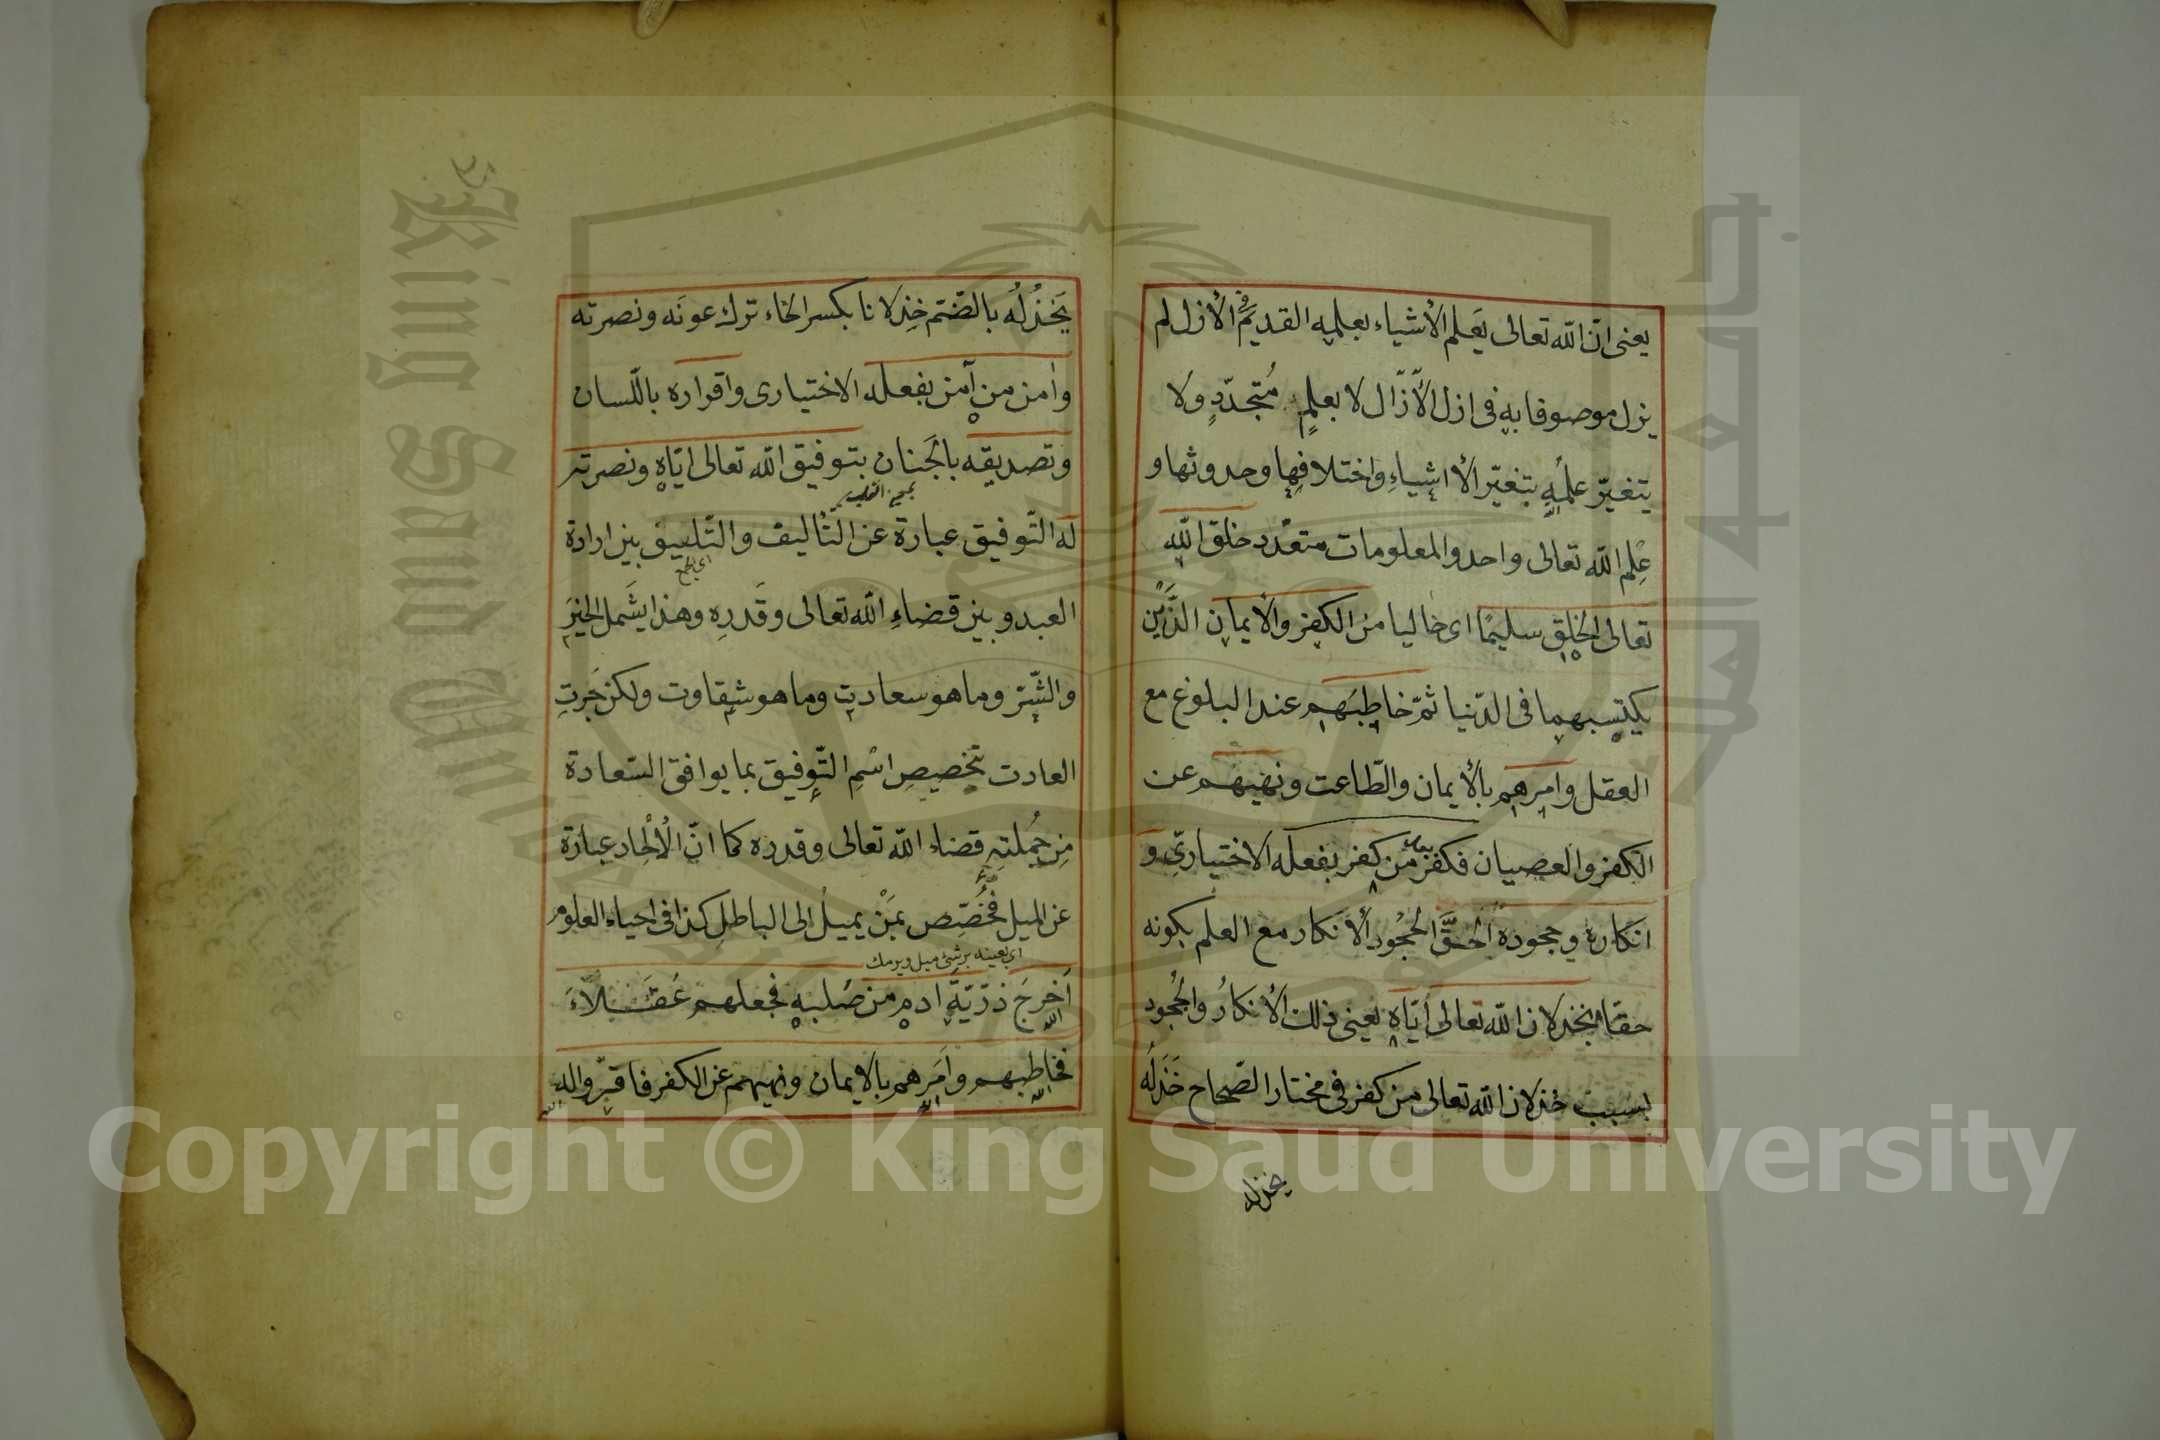 يعنى انّ الله تعالى يَعلم الأشياء بعلمِه القديم فى الأزل لم
يزل موصوفا بهِ فى ازل الأزال لا بعلمٍ مُتجدّدٍ ولا
يتغيّر علمُهِ بتغيّر الأاشياءِ واختلافِها وحدوثها و
عِلم الله تعالى واحد والمعلومات متعدّد خلق اللهِ
تعالى الخلق سليمًا اى خاليا من الكفرِ والأيمانِ الذَّيْنِ
يكتسبهما فى الدّنيا ثمّ خاطبَهم عند البلوغ مع
العقل وامرهم بالأيمان والطّاعت ونهيهم عن
الكفر والعصيان فكفر من كفر بفعله الاختيارىّ و
انكارهِ وجحودهِ الحقَّ الجُحْود الأنكار مع العلم بكونه
حقا بخذلان الله تعالى ايّاه يعنى ذلك الأنكارُ والجُحود
بسبب خذلان الله تعالى من كفر فى مختار الصّحاح خَذَلَهُ
يخذله
يَخذُلُه بالضّم خِذلانا بكسر الخاء ترك عونَه ونصرته
واٰمن من آمن بفعله الاختيارى واقراره باللّسان
وتصديقه بالجَنان بتوفيق الله تعالى ايّاهِ ونصرته
له التّوفيق عبارة عن التأليف والتّلفيق بين ارادة
العبد وبين قضاءِ الله تعالى وقَدَرِه وهذا يشَمل الخيرَ
والشّر وما هو سعادت وما هو شقاوت ولكن جَرتِ
العادت بتخصيصِ اسْمِ التّوفيق بما يوافق السّعادة
مِن جُملتِهِ قضاء الله تعالى وقدره كما انّ الْألْحِاد عبارة
عن الميل فخُصِّص بمَنْ يميلُ الى الباطلِ كذا فى احياء العلوم
اخرجَ ذرّيّةِ ادم من صُلبهِ فجعلهم عُقَلآءَ
الله
فخاطبهم وامَرهم بالايمان ونهيهم عن الكفر فاقرّوا له
King Saud University
Copyright © King Saud University